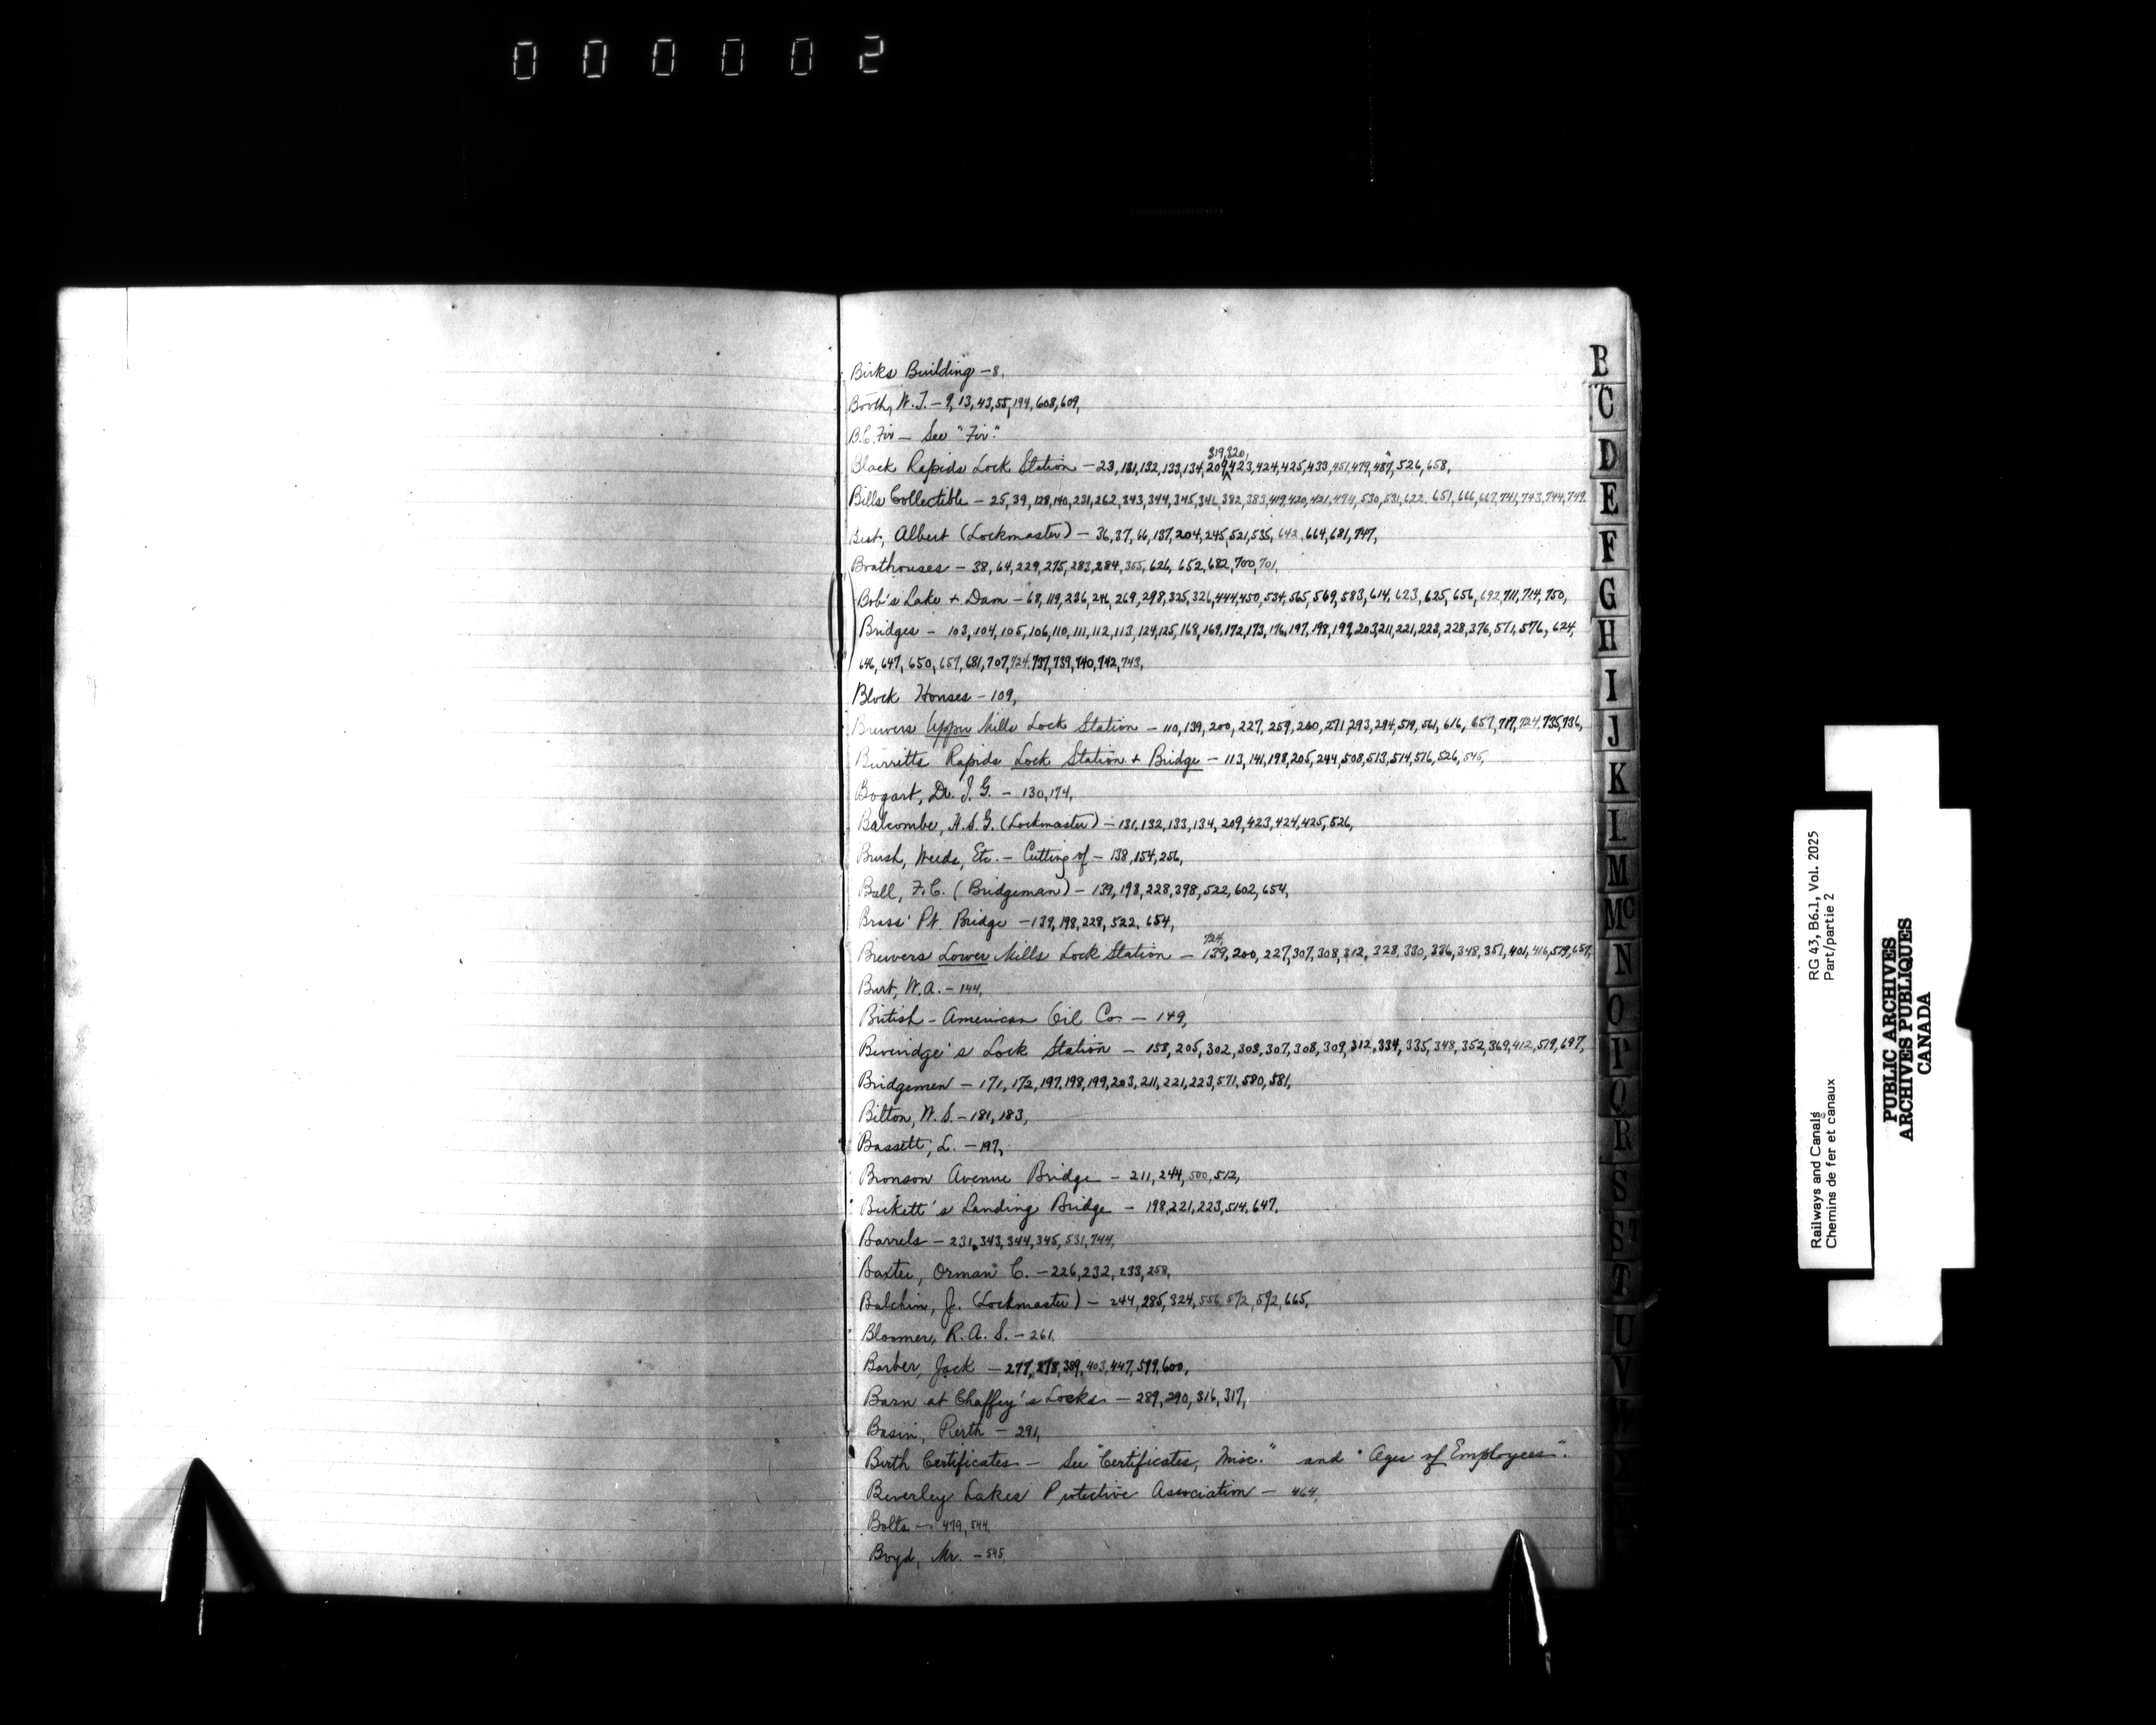 000002
Birks Building – 8,
Booth, W.J. – 9, 13, 43, 55, 194, 608, 609,
B.C. Fir – See "Fir."
319,320,
Black Rapids Lock Station – 23, 131, 132, 133, 134, 209, 423, 424, 425, 433, 451, 479, 487, 526, 658,
Bills Collectible – 25, 39, 128, 140, 231, 262, 343, 344, 345, 346, 382, 383, 419, 420, 421, 494, 530, 531, 622, 651, 666, 667, 741, 743, 744, 749.
Best, Albert (Lockmaster) – 36, 37, 66, 137, 204, 245, 521, 535, 642, 664, 681, 747,
Boathouses – 38, 64, 229, 275, 283, 284, 355, 626, 652, 682, 700, 701,
Bob's Lake + Dam – 68, 119, 236, 246, 269, 298, 325, 326, 444, 450, 534, 565, 569, 583, 614, 623, 625, 656, 692, 711, 714, 750,
Bridges – 103, 104, 105, 106, 110, 111, 112, 113, 124, 125, 168, 169, 172, 173, 176, 197, 198, 199, 203, 211, 221, 223, 228, 376, 571, 576, 624,
646, 647, 650, 657, 681, 707, 724, 737, 739, 740, 742, 743,
Block Houses – 109,
Brewers Upper Mills Lock Station – 110, 139, 200, 227, 259, 260, 271, 293, 294, 519, 561, 616, 657, 717, 724, 735, 736,
Burritts Rapids Lock Station + Bridge – 113, 141, 198, 205, 244, 508, 513, 514, 516, 526, 545,
Bogart, Dr. J.G. – 130, 174,
Balcombe, H.S.G. (Lockmaster) – 131, 132, 133, 134, 209, 423, 424, 425, 526,
Brush, Weeds, Etc. – Cutting of – 138, 154, 256,
Ball, F.C. (Bridgeman) – 139, 198, 228, 398, 522, 602, 654,
Brass' Pt. Bridge – 139, 198, 228, 522, 654,
724,
Brewers Lower Mills Lock Station – 139, 200, 227, 307, 308, 312, 328, 330, 336, 348, 351, 401, 416, 519, 657,
Burt, W.A. – 144,
British-American Oil Co. – 149,
Beveridge's Lock Station – 158, 205, 302, 303, 307, 308, 309, 312, 334, 335, 348, 352, 369, 412, 519, 697,
Bridgemen – 171, 172, 197, 198, 199, 203, 211, 221, 223, 571, 580, 581,
Bilton, W.S. – 181, 183,
Bassett, L. – 197,
Bronson Avenue Bridge – 211, 244, 500, 512,
Beckett's Landing Bridge – 198, 221, 223, 514, 647,
Barrels – 231, 343, 344, 345, 531, 744,
Baxter, Orman C. – 226, 232, 233, 258,
Balchin, J. (Lockmaster) – 244, 285, 324, 556, 572, 592, 665,
Bloomer, R.A.S. – 261,
Barber, Jack – 277, 278, 389, 403, 447, 599, 600,
Barn at Chaffey's Locks – 289, 290, 316, 317,
Basin, Perth – 291,
Birth Certificates – See "Certificates, Misc." and "Ages of Employees".
Beverley Lakes Protective Association – 464,
Bolts – 479, 544,
Boyd, Mr. – 545,
B
C
D
E
F
G
H
I
J
K
L
M
Mc
N
O
P
Q
R
S
St
T
U
V
W
RG 43, B6.1, Vol. 2025
Part/partie 2
Railways and Canals
Chemins de fer et canaux
PUBLIC ARCHIVES
ARCHIVES PUBLIQUES
CANADA